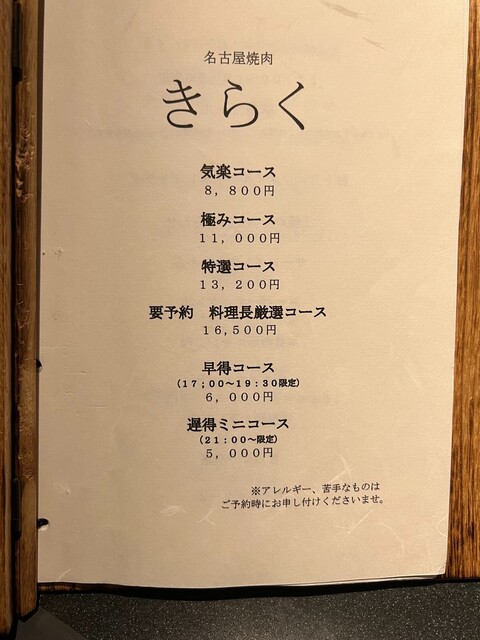 名古屋焼肉
きらく
気楽コース
8,800円
極みコース
11,000円
特選コース
13,200円
要予約　料理長厳選コース
16,500円
早得コース
(17;00〜19:30限定)
6,000円
遅得ミニコース
(21:00〜限定)
5,000円
※アレルギー、苦手なものは
ご予約時にお申し付けくださいませ。